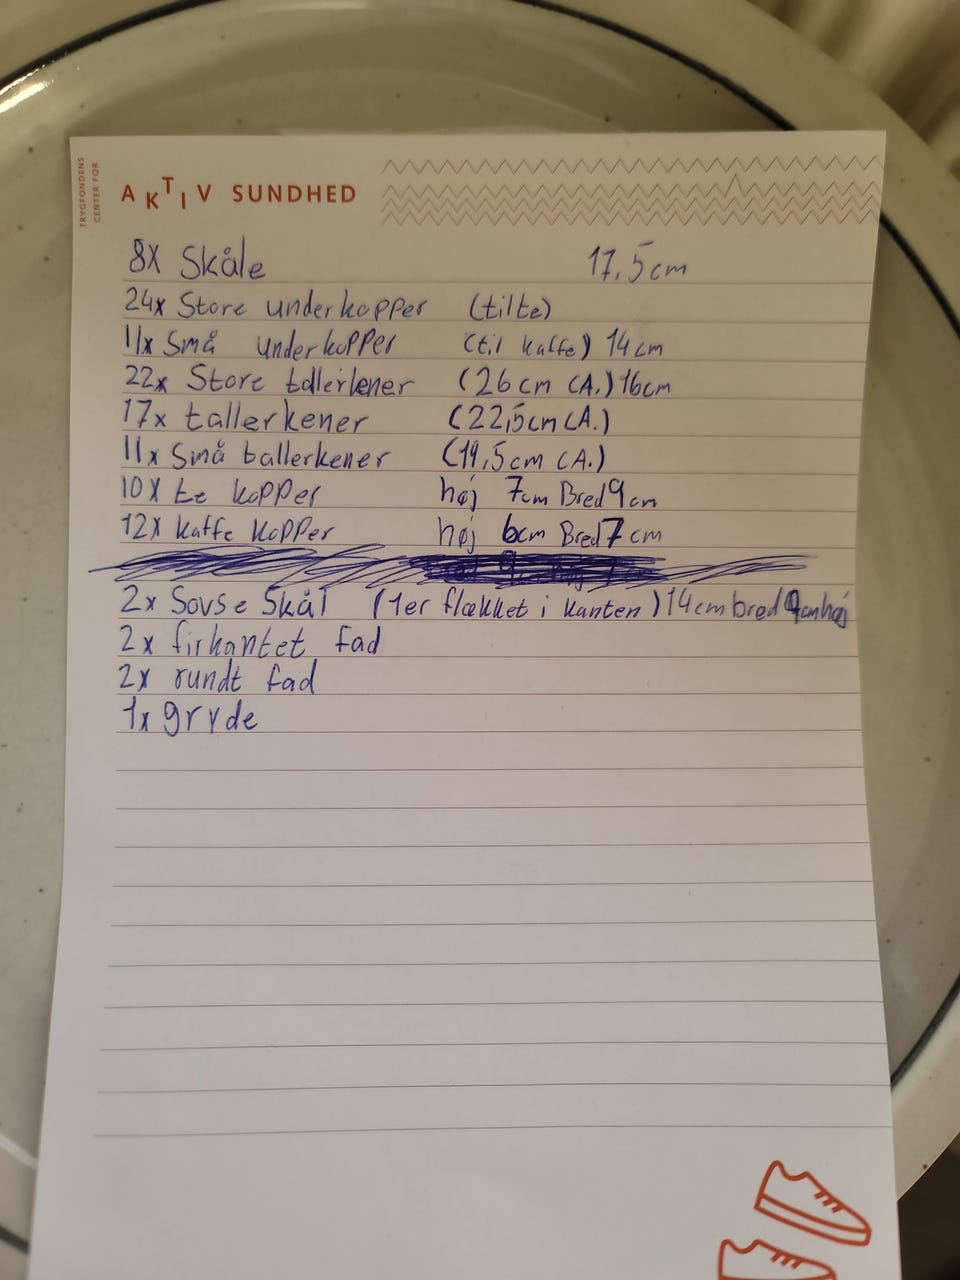 TRYGFONDENS
CENTER FOR
AKTIV SUNDHED
8x Skåle 17,5cm
24x Store underkopper (til te)
11x Små underkopper (til kaffe) 14cm
22x Store tallerkener (26cm CA.) 16cm
17x tallerkener (22,5cm CA.)
11x Små tallerkener (19,5cm CA.)
10x te kopper høj 7cm Bred 9cm
12x kaffe kopper høj 6cm Bred 7cm
2x Sovse Skål (1 er flækket i kanten) 14cm bred høj
2x firkantet fad
2x rundt fad
1x gryde